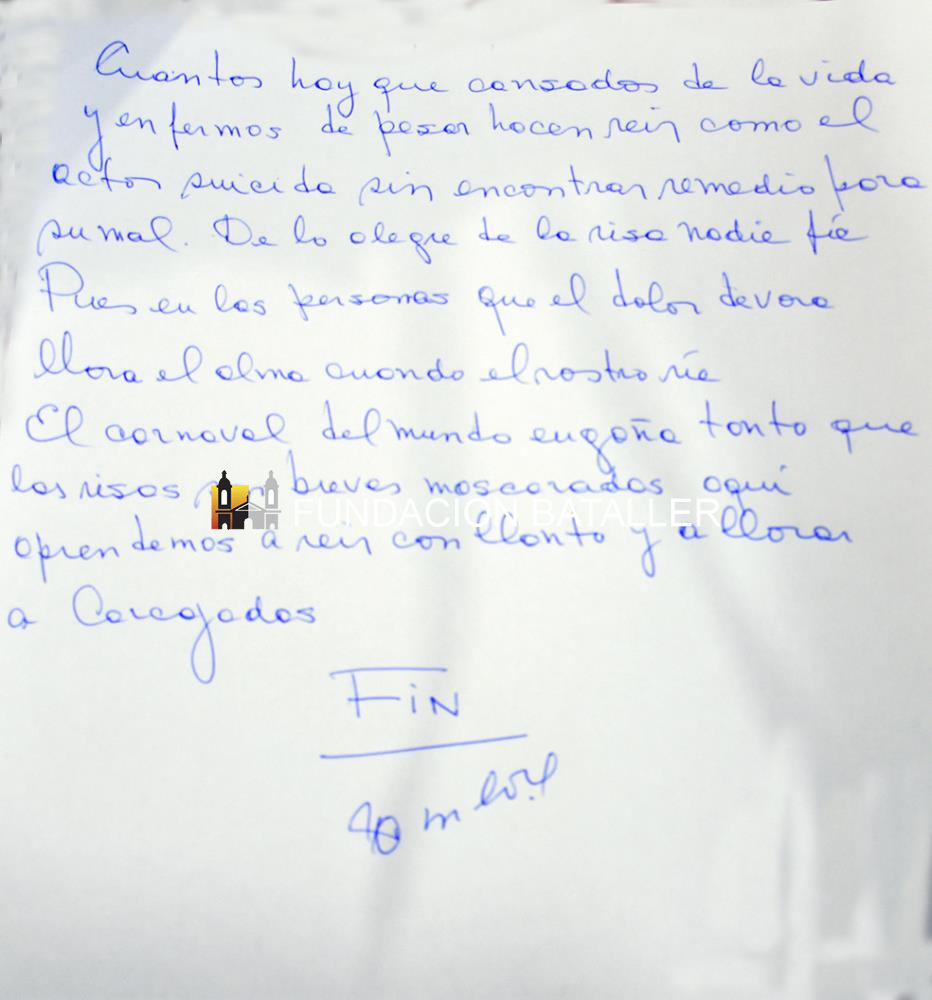 Cuantos hay que cansados de la vida
y enfermos de pesar hacen reir como el
actor suicida sin encontrar remedio para
su mal. De lo alegre de la risa nadie fíe
Pues en las personas que el dolor devora
llora el alma cuando el rostro ríe
El carnaval del mundo engaña tanto que
las risas breves mascaradas aquí
FUNDACION BATALLER
aprendemos a reir con llanto y a llorar
a Carcajadas
FiN